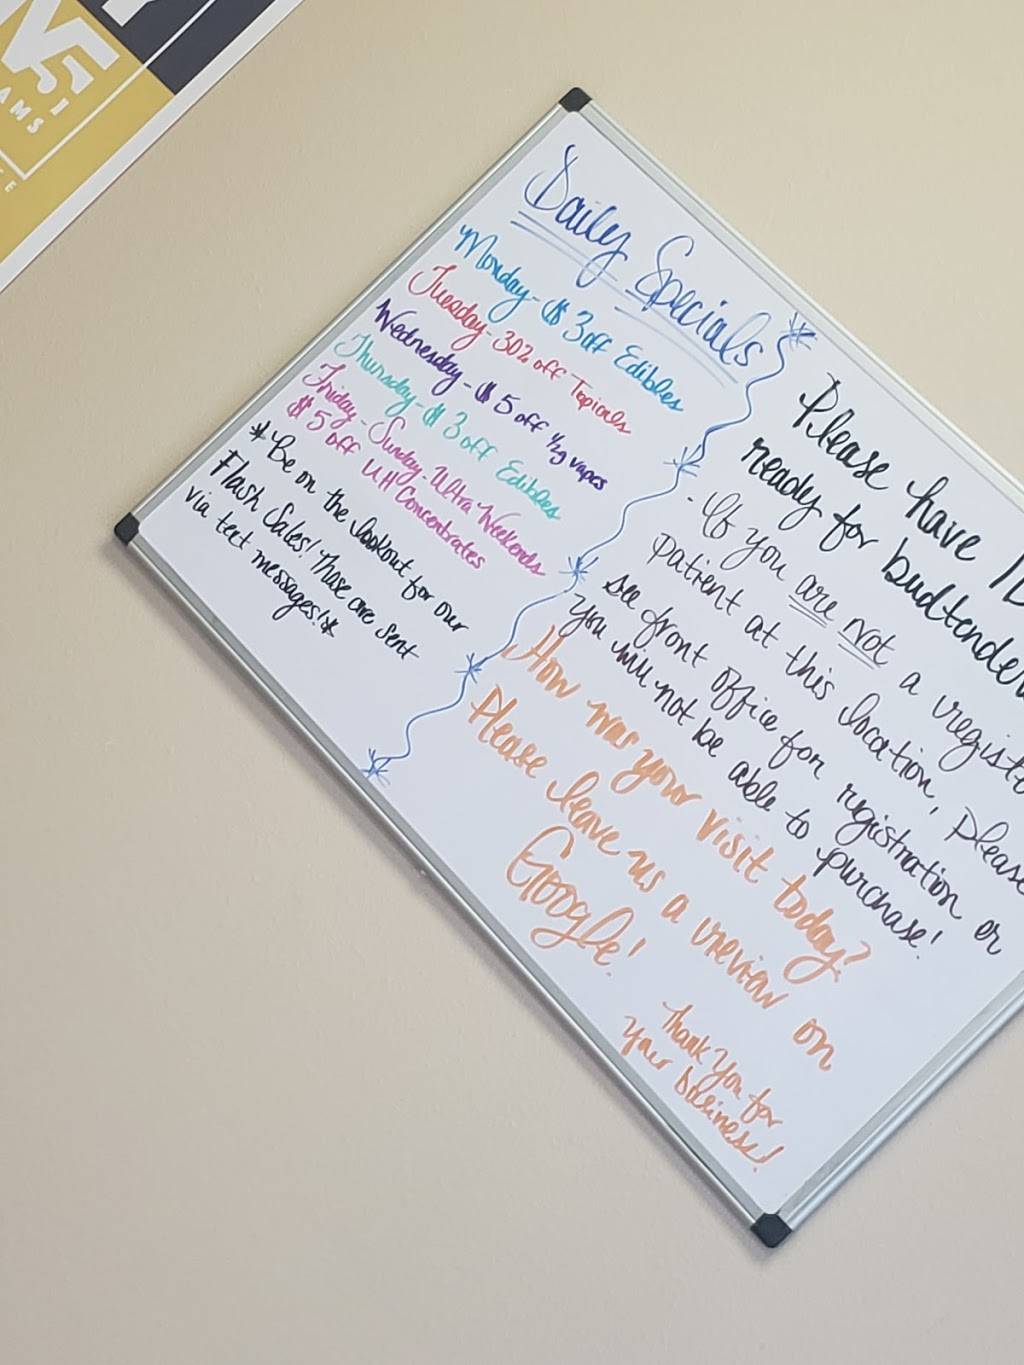 AMS
Daily Specials
Monday - $3 off Edibles
Tuesday - 30% off Topicals
Wednesday - $5 off 1/2g vapes
Thursday - $3 off Edibles
Friday - Sunday - Ultra Weekends
$5 off UH Concentrates
*Be on the lookout for our
Flash Sales! These are sent
via text messages!*
Please have
ready for budtender
- If you are not a
patient at this location, please
see front office for registration or
you will not be able to purchase!
How was your visit today?
Please leave us a review on
Google!
Thank you for
your business!